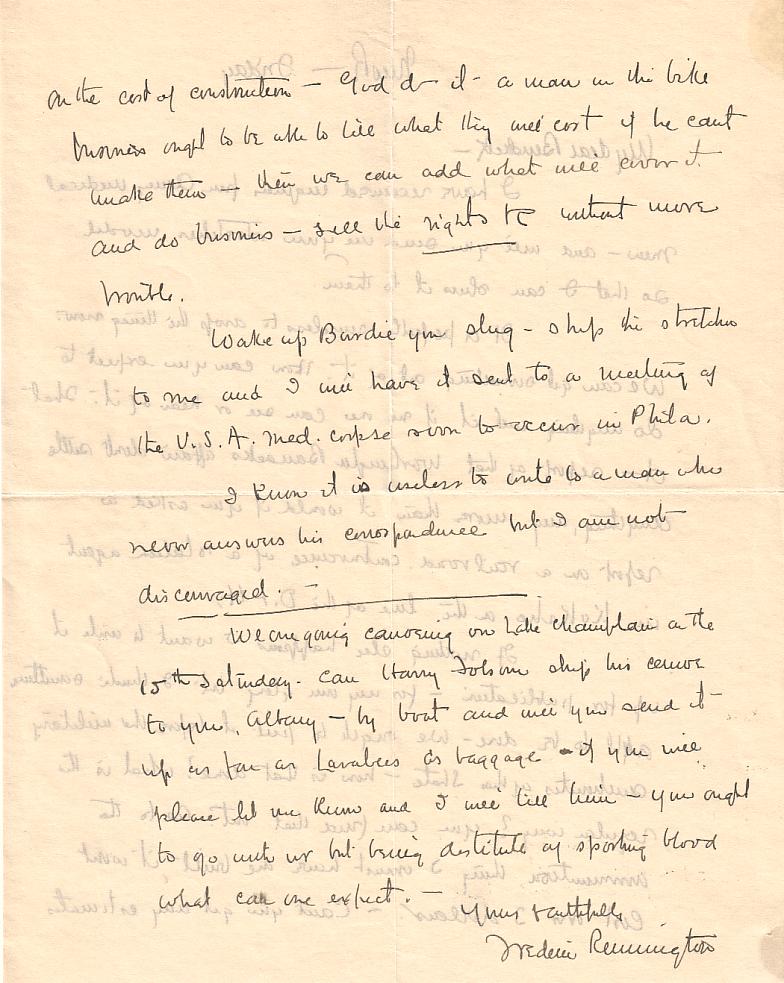 on the cost of construction — God d— it — a man in the bike
business ought to be able to tell what they will cost if he cant
make them — then we can add what will cover it
and do business — sell the rights &c without more
trouble.
Wake up Bardie you slug — ship the stretcher
to me and I will have it sent to a meeting of
the U.S.A. Med. corpse soon to occur in Phila.
I know it is useless to write to a man who
never answers his correspondence but I am not
discouraged. —
We are going canoeing on Lake Champlain on the
15th Saturday. Can Harry Folsom ship his canoe
to you, Albany — by boat and will you send it
up as far as Lavalees as baggage — if you will
please let me know and I will tell him — you ought
to go with us but being destitute of sporting blood
what can one expect. —
Yours faithfully
Frederic Remington